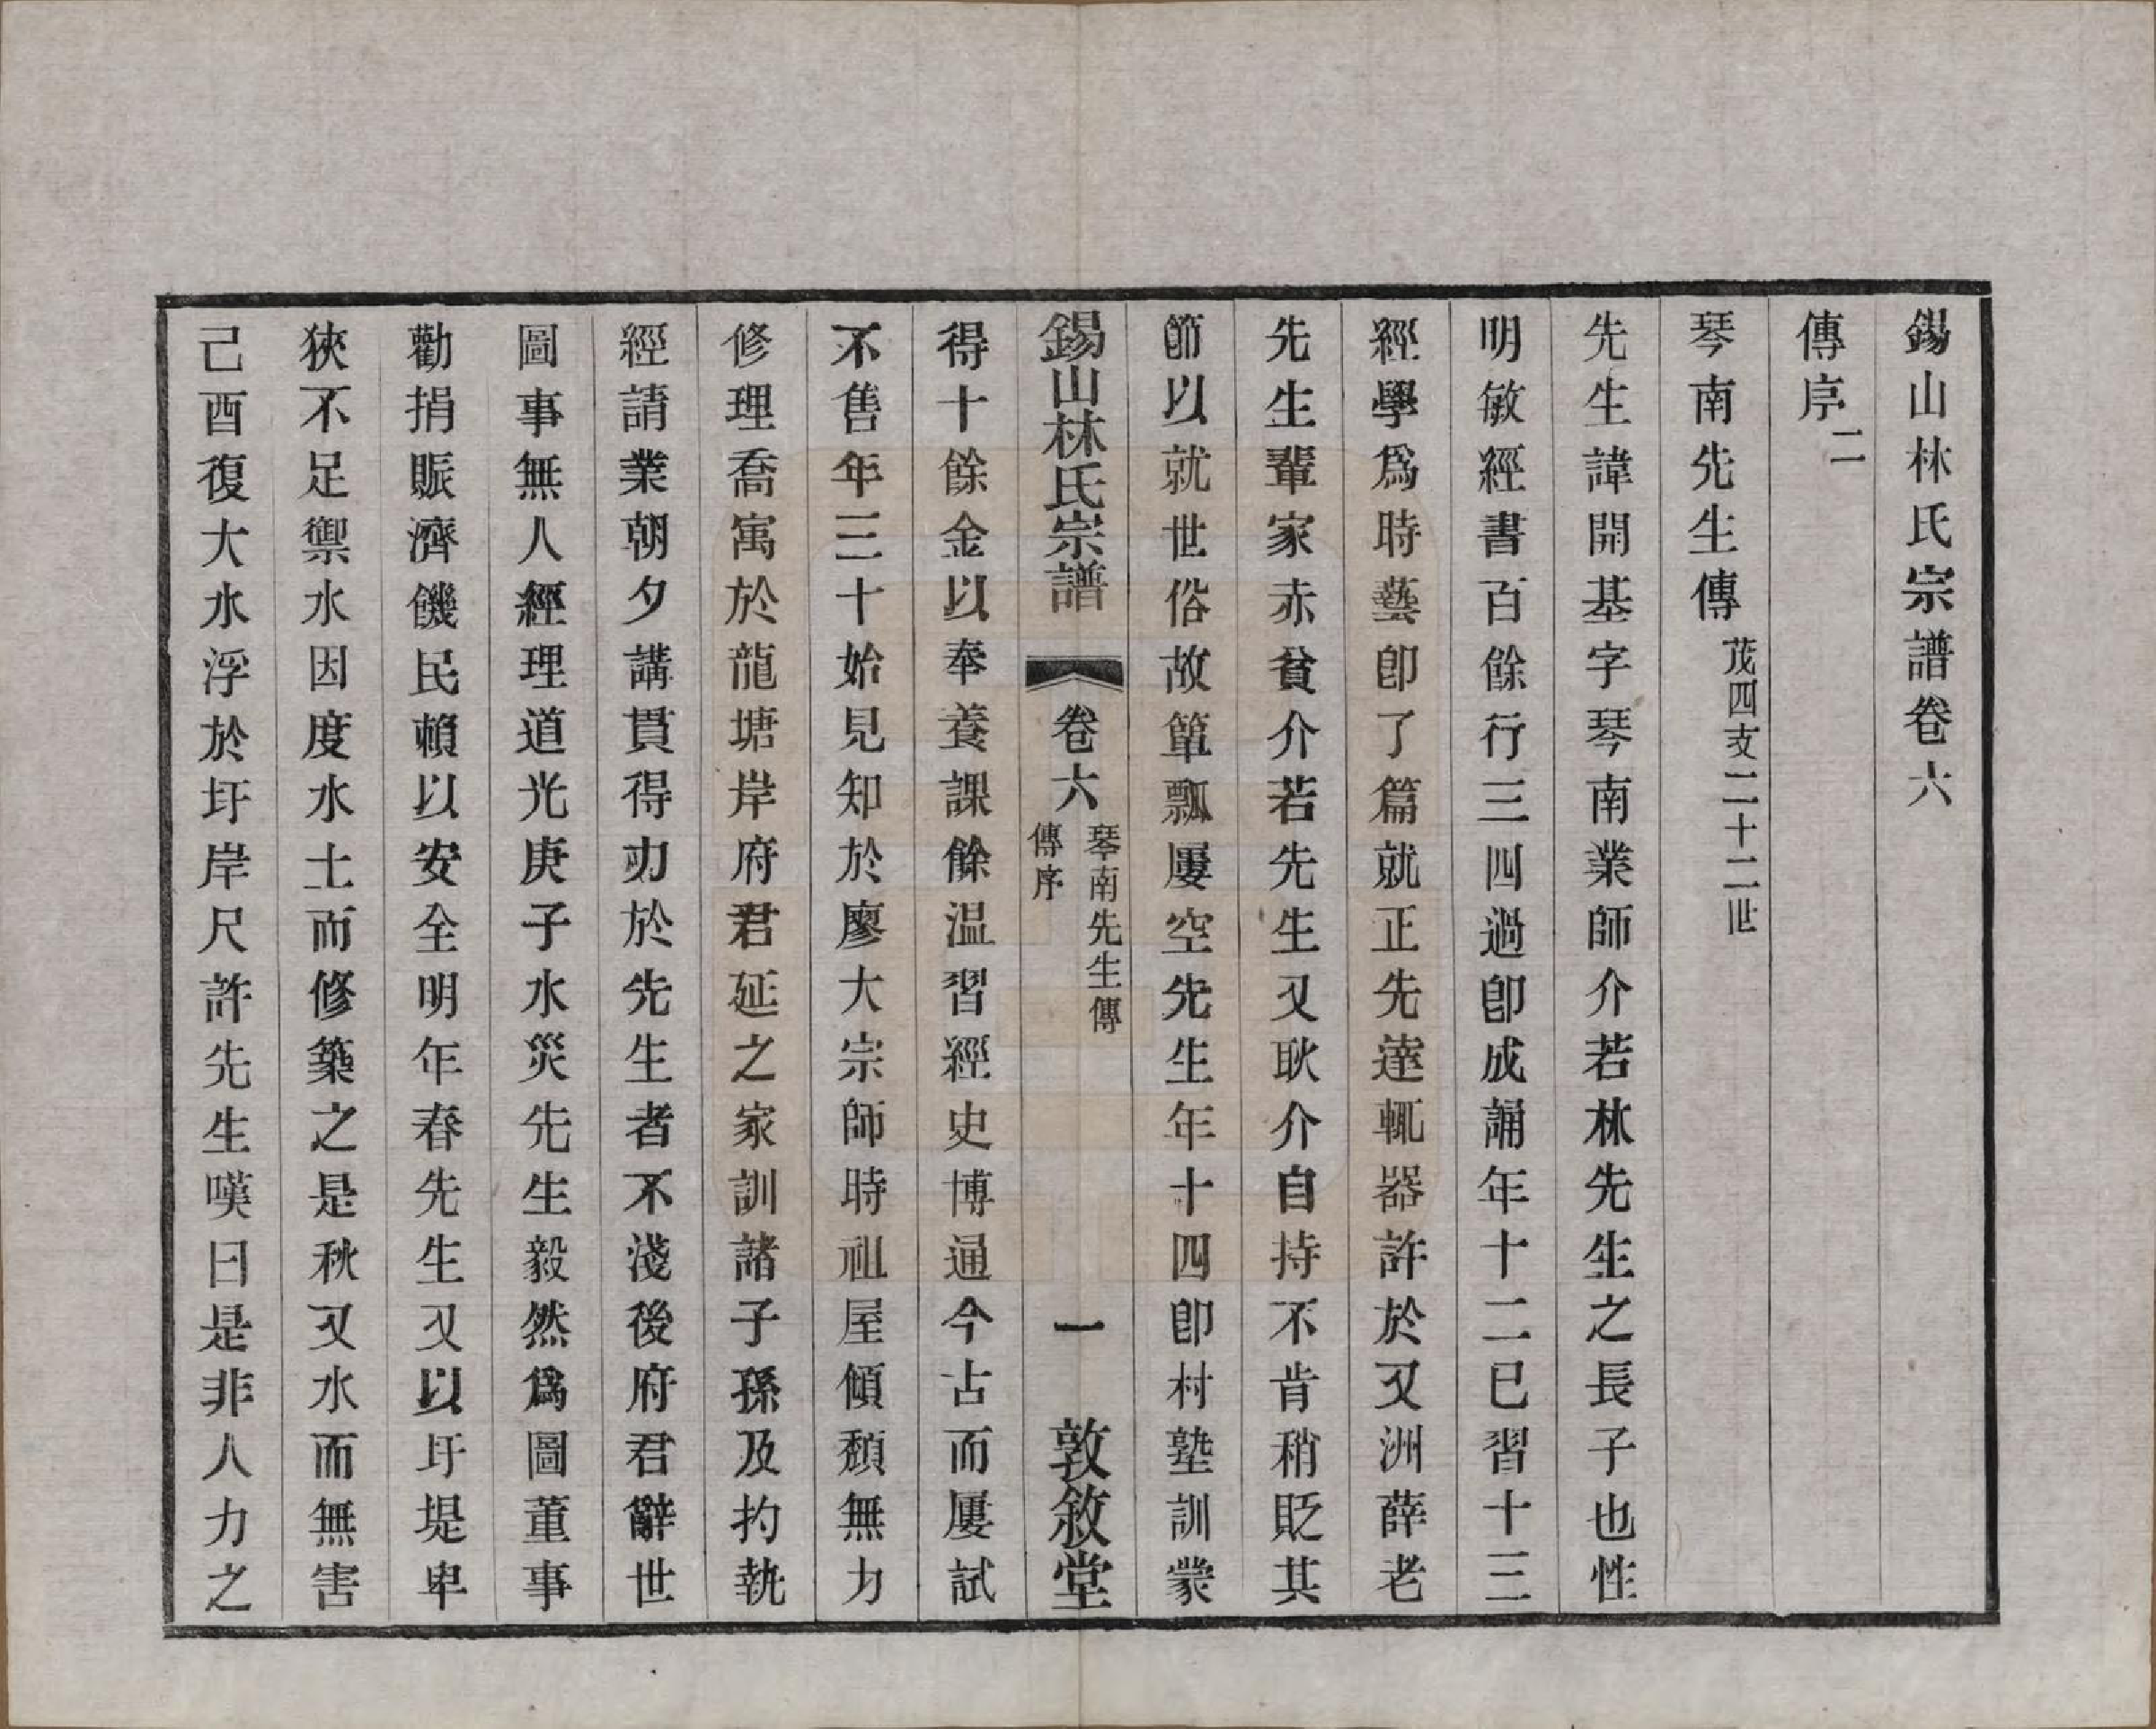 錫山林氏宗譜卷六
傳序二
琴南先生傳 茂四支二十二世
先生諱開基字琴南業師介若林先生之長子也性
明敏經書百餘行三四過卽成誦年十二已習十三
經學爲時藝卽了篇就正先達輒器許於又洲薛老
先生輩家赤貧介若先生又耿介自持不肯稍貶其
節以就世俗故簞瓢屢空先生年十四卽村塾訓蒙
錫山林氏宗譜 卷六 琴南先生傳 傳序 一 敦敘堂
得十餘金以奉養課餘温習經史博通今古而屢試
不售年三十始見知於廖大宗師時祖屋傾頹無力
修理喬寓於龍塘岸府君延之家訓諸子孫及扚執
經請業朝夕講貫得力於先生者不淺後府君辭世
圖事無人經理道光庚子水災先生毅然爲圖董事
勸捐賑濟饑民賴以安全明年春先生又以圩堤卑
狹不足禦水因度水土而修築之是秋又水而無害
己酉復大水浮於圩岸尺許先生嘆曰是非人力之